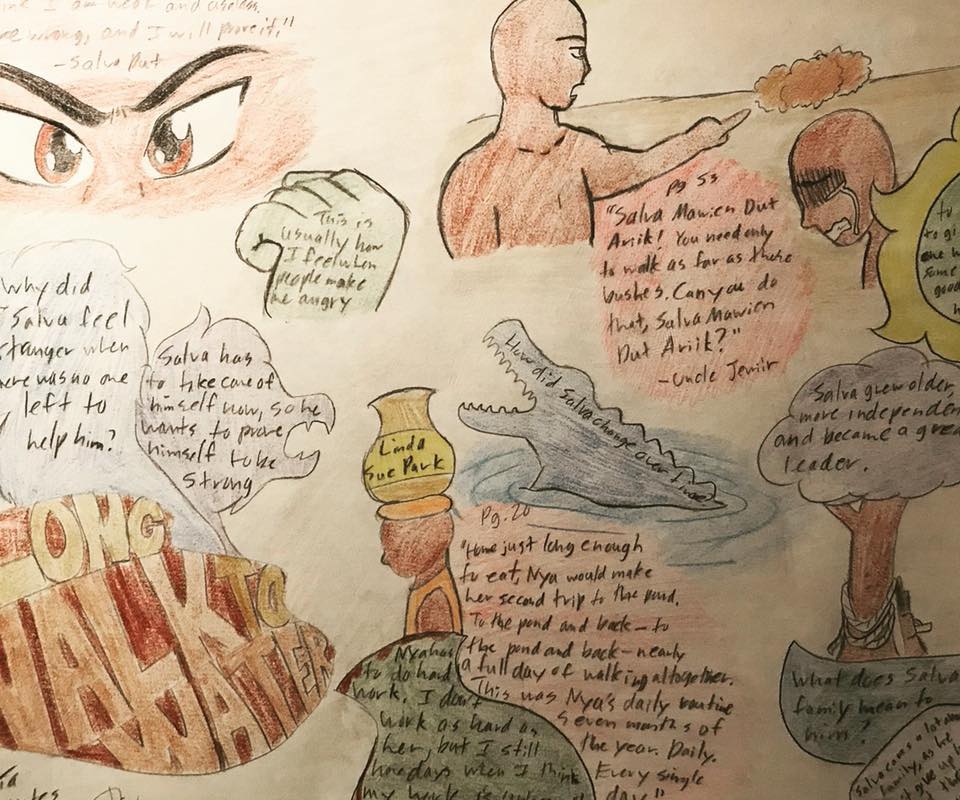 I am weak and useless.
wrong, and I will prove it."
-Salva Dut
This is
usually how
I feel when
people make
me angry
pg 53
"Salva Mawien Dut
Ariik! You need only
to walk as far as those
bushes. Can you do
that, Salva Mawien
Dut Ariik?"
-Uncle Jewiir
to
to gi
one w
some
good
h
Why did
Salva feel
stronger when
there was no one
left to
help him?
Salva has
to take care of
himself now, so he
wants to prove
himself to be
strong
How did Salva change over time?
Salva grew older,
more independen
and became a grea
leader.
Linda
Sue Park
LONG
WALK TO
WATER
Pg. 20
"Home just long enough
to eat, Nya would make
her second trip to the pond.
To the pond and back—to
the pond and back—nearly
a full day of walking altogether.
This was Nya's daily routine
seven months of
the year. Daily.
Every single
day."
Nya has
to do hard
work. I don't
work as hard as
her, but I still
have days when I think
my work is
What does Salva
family mean to
him?
Salva cares a lot about
family, as he
give up
the